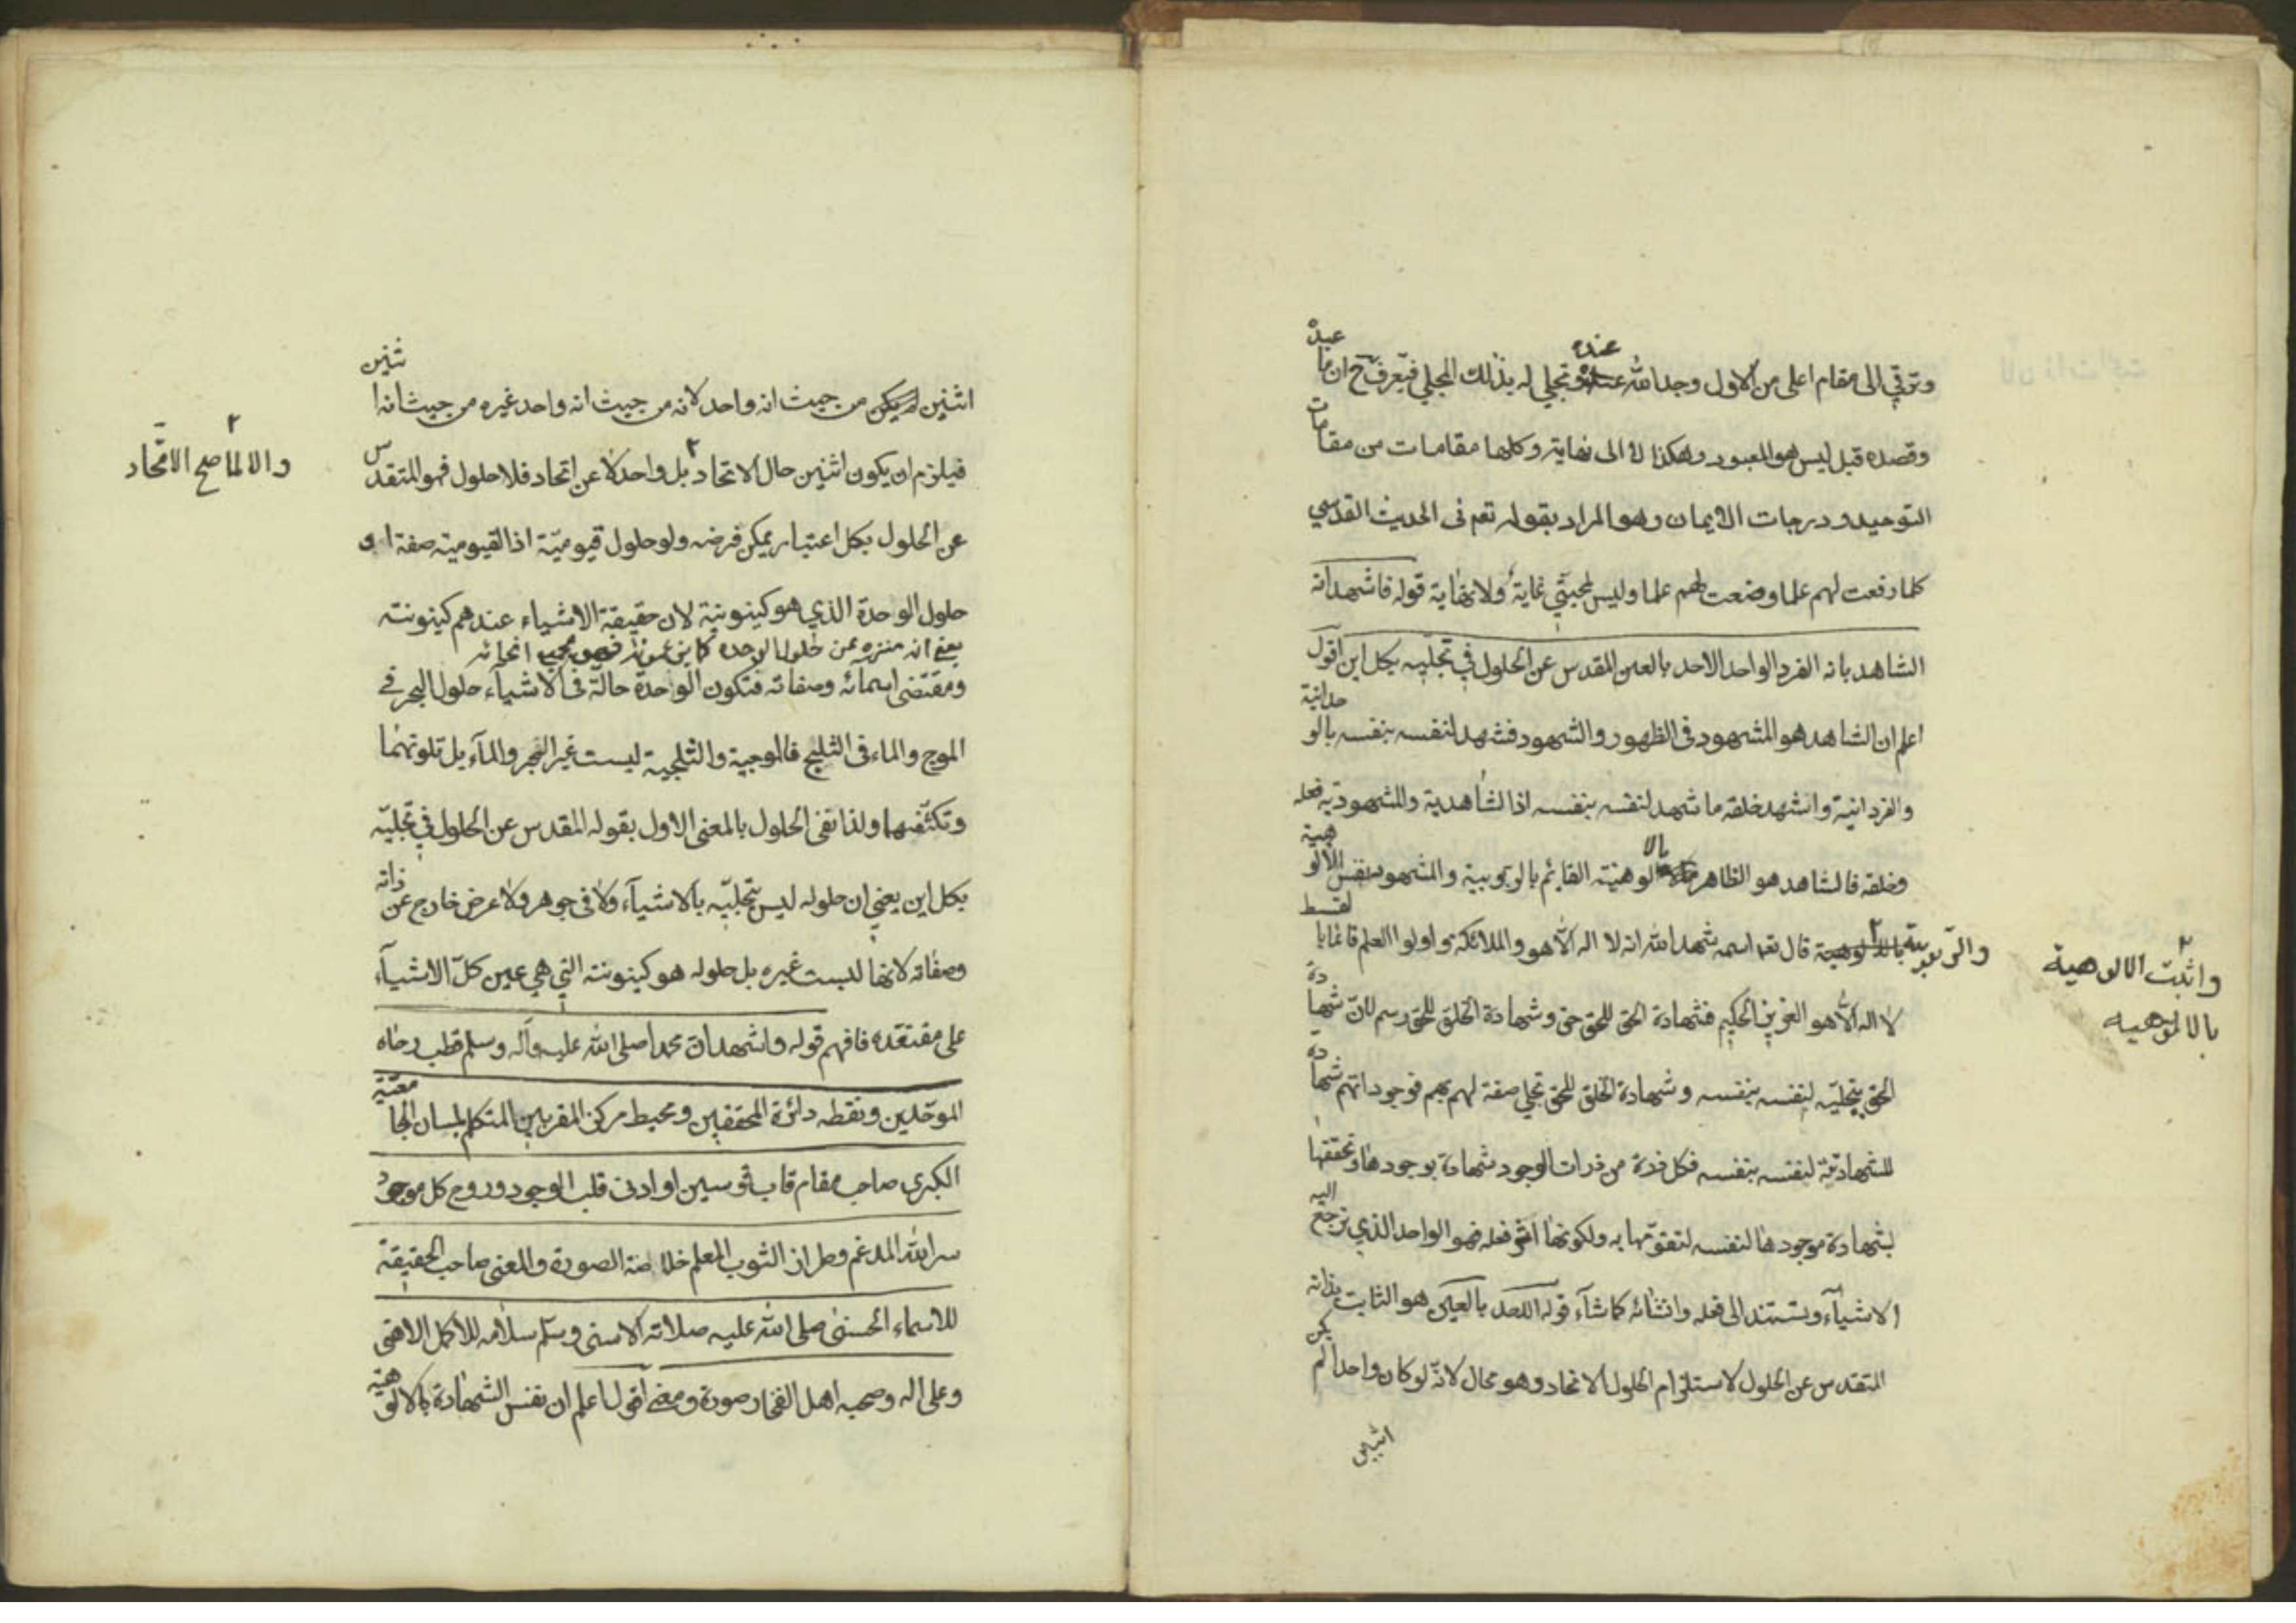 وترقي الى مقام اعلى من الاول وجد الله عنده وتجلي له بذلك المجلي فيعرف ح ان ما عبده
وقصده قبل ليس هو المعبود وهكذا لا الى نهاية وكلها مقامات من مقامات
التوحيد ودرجات الايمان وهو المراد بقوله تعم في الحديث القدسي
كلما رفعت لهم علما وضعت لهم علما وليس لمحبتي غاية ولا نهاية قوله فاشهد انه
الشاهد بانه الفرد الواحد الاحد بالعين المقدس عن الحلول في تجليه بكل اين اقول
اعلم ان الشاهد هو المشهود في الظهور والشهود فشهد لنفسه بنفسه بالوحدانية
والفردانية واشهد خلقه ما شهد لنفسه بنفسه اذ الشاهدية والمشهودية فعله
وخلقه فالشاهد هو الظاهر بالالوهية القايم بالربوبية والمشهود نفس الالوهية
والربوبية قال تعم اسمه شهد الله انه لا اله الا هو والملائكة واولوا العلم قائما بالقسط
واثبت الالوهية
بالالوهيه
لا اله الا هو العزيز الحكيم فشهادة الحق للحق حق وشهادة الخلق للحق رسم لان شهادة
الحق بتجليه لنفسه بنفسه وشهادة الخلق للحق تجلي صفة لهم بهم فوجوداتهم شهادة
للشهادتية لنفسه بنفسه فكل ذرة من ذرات الوجود شهادة بوجودها وتحققها
بشهادة موجودها لنفسه لتقومها به ولكونها اثر فعله فهو الواحد الذي ترجع اليه
الاشياء وتستند الى فعله وانشائه كما شاء قوله الاحد بالعين هو الثابت بذاته
المتقدس عن الحلول لاستلزام الحلول الاتحاد وهو محال لانه لو كان واحدا لم يكن
اثنين
اثنين لم يكن من حيث انه واحد لانه من حيث انه واحد غيره من حيث انه اثنين
فيلزم ان يكون اثنين حال الاتحاد بل واحد لا عن اتحاد فلا حلول فهو المتقدس
والا لما صح الاتحاد
عن الحلول بكل اعتبار يمكن فرضه ولو حلول قيومية اذ القيومية صفة او
حلول الوحدة الذي هو كينونية لان حقيقة الاشياء عندهم كينونته
يعني انه منزه عن حلول الوحده كما يزعمون انحائه
ومقتضى اسمائه وصفاته فتكون الوحدة حالة في الاشياء حلول البحر في
الموج والماء في الثلج فالموجية والثلجية ليست غير البحر والماء بل تلونهما
وتكثفهما ولذا نفى الحلول بالمعنى الاول بقوله المقدس عن الحلول في تجليه
بكل اين يعني ان حلوله ليس بتجليه بالاشياء ولا في جوهر ولا عرض خارج عن ذاته
وصفاته لانها ليست غيره بل حلوله هو كينونته التي هي عين كل الاشياء
على معتقده فافهم قوله واشهد ان محمدا صلى الله عليه وآله وسلم قطب رحاه
الموحدين ونقطه دائرة المحققين ومحيط مركز المقربين المتكلم بلسان الجامعية
الكبرى صاحب مقام قاب قوسين او ادنى قلب الوجود وروح كل موجود
سر الله المدغم وطراز الثوب المعلم خلاصة الصورة والمعنى صاحب الحقيقة
للاسماء الحسنى صلى الله عليه صلاته الاسنى وسلم سلامه للاكمل الاهنى
وعلى اله وصحبه اهل الفخار صورة ومعنى اقول اعلم ان نفس الشهادة بالالوهية